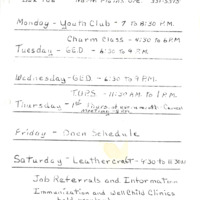 Monday - Youth Club - 7 to 8:30 P.M.
Charm Class - 4:30 to 6 P.M.
Tuesday - G.E.D - 6:30 to 9 P.M.
Wednesday - G.E.D - 6:30 to 9 P.M.
TOPS - 11:30 A.M. to 1 P.M.
Thursday - 1st Thurs. of each month - Council
Meeting -
Friday - Open Schedule
Saturday - Leathercraft - 4:30 to 8:30
Job Referrals and Information
Immunization and Well Child Clinics